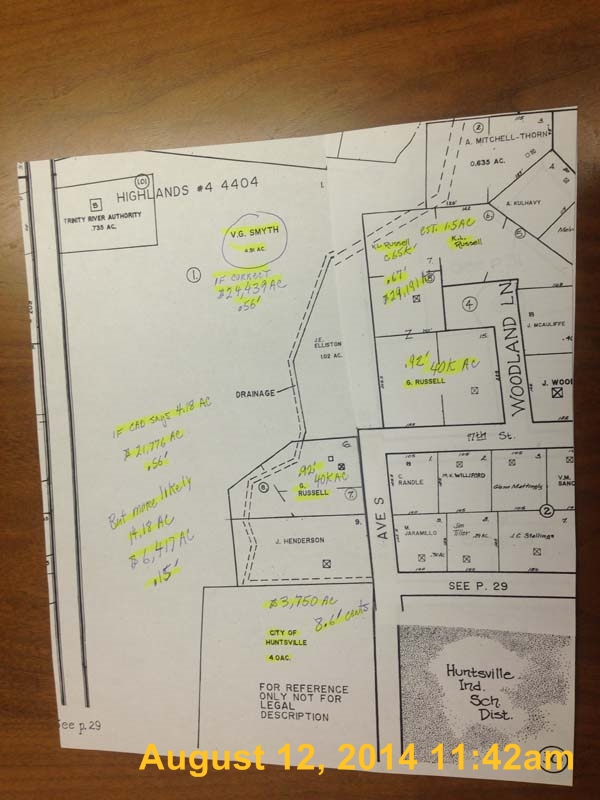 HIGHLANDS #4 4404
101
B
TRINITY RIVER AUTHORITY
.735 AC.
V.G. SMYTH
4.51 AC.
1.
IF CORRECT
$24,439 AC
.56'
IF CAD says 4.18 AC
$21,776 AC
.56'
But more likely
14.18 AC
$6,417 AC
.15'
DRAINAGE
J.E. ELLISTON
1.02 AC.
2
A. MITCHELL-THORN
0.635 AC.
3.
4.
A. KULHAVY
5.
6.
est. 1.5 AC
K.L. Russell
K.L. Russell
.67'
$29,191 AC
7.
4
.92'
40K AC
G. RUSSELL
WOODLAND LN
J. MCAULIFFE
17th St.
AVE S
6.
.92'
40K AC
G. RUSSELL
7.
8
9.
J. HENDERSON
C. RANDLE
M.V. WILLIFORD
Glenn Mattingly
2
M. JARAMILLO
Jim Tiller
J.C. Stallings
SEE P. 29
$3,750 AC
8.6' cents
CITY OF
HUNTSVILLE
4.0 AC.
FOR REFERENCE
ONLY NOT FOR
LEGAL
DESCRIPTION
Huntsville
Ind.
Sch
Dist.
See p. 29
August 12, 2014 11:42am